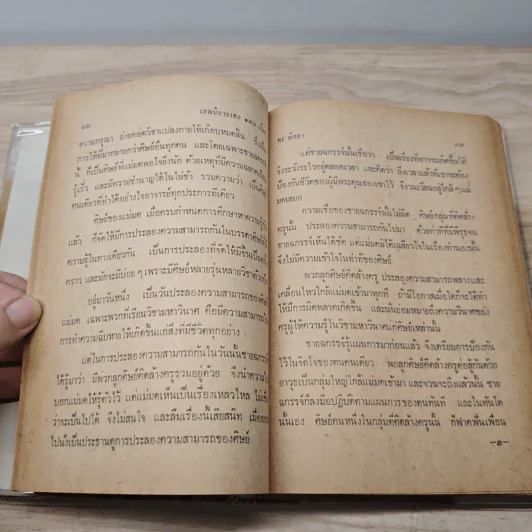 ๑๖
ความกรุณา ถ่ายทอดวิชาแปลงกายให้เกือบหมดสิ้น ซึ่งเป็น
การให้อย่างมากมายกว่าศิษย์อื่นทุกคน และโดยเฉพาะชายฉกรรจ์
นี้ ก็เป็นศิษย์ที่แม่มดพอใจยิ่งนัก ด้วยเหตุที่มีความฉลาดเรียน
รู้เร็ว และมีความชำนาญได้ในไม่ช้า รวมความว่า เป็นศิษย์
คนเดียวที่ทำได้อย่างใจอาจารย์ทุกประการทีเดียว
ศิษย์ของแม่มด เมื่อครบกำหนดการศึกษาหาความรู้
แล้ว ก็จัดให้มีการประลองความสามารถกันในบรรดาศิษย์ที่
ความรู้ในทางเดียวกัน เป็นการประลองที่จัดให้มีขึ้นเป็น
คราว และมักจะมีบ่อย ๆ เพราะมีศิษย์หลายรุ่นหลายวิชาด้วยกัน
อยู่มาวันหนึ่ง เป็นวันประลองความสามารถของศิษย์
แม่มด เฉพาะพวกที่เรียนวิชามหาวินาศ คือมีความสามารถใน
การทำความฉิบหายให้เกิดขึ้นแก่สิ่งที่มีชีวิตทุกอย่าง
แต่ในการประลองความสามารถกันในวันนั้นชายฉกรรจ์
ได้รู้มาว่า มีพวกลูกศิษย์คิดล้างครูรวมอยู่ด้วย จึงนำความไป
บอกแม่มดให้รู้ตัวไว้ แต่แม่มดเห็นเป็นเรื่องเหลวไหล ไม่เชื่อ
ว่าจะเป็นไปได้ จึงไม่สนใจ และลืมเรื่องนี้เสียสนิท เมื่อออก
ไปนั่งเป็นประธานดูการประลองความสามารถของศิษย์
๑๗
แต่ชายฉกรรจ์นั้นเชื่อว่า เป็นเรื่องที่อาจจะเกิดขึ้นได้
จึงระวังระไวอยู่ตลอดเวลา และว่า ถึงเวลาแล้วที่เขาจะต้อง
ป้องกันชีวิตของผู้มีพระคุณของเขาไว้ จึงวนเวียนอยู่ใกล้ๆแม่
มดเสมอ
ความเชื่อของชายฉกรรจ์นั้นไม่ผิด ศิษย์กลุ่มที่คิดล้าง
ครูนั้น ประลองความสามารถกันไปมา ด้วยท่าทีที่มีพิรุธจน
ชายฉกรรจ์เห็นได้ชัด แต่แม่มดมิได้เฉลียวใจในเรื่องทำนองนั้น
จึงไม่มีความเข้าใจในท่าทีของศิษย์
พวกลูกศิษย์คิดล้างครู ประลองความสามารถพลางและ
เคลื่อนไหวใกล้แม่มดเข้ามาทุกที ถ้ามีโอกาสเมื่อใดก็จะได้ทำ
ให้มีการผิดพลาดเกิดขึ้น และนั่นย่อมหมายถึงความวินาศของ
ครูผู้ให้ความรู้ในวิชามหาวินาศแก่ศิษย์เหล่านั้น
ชายฉกรรจ์ผู้แผนการมาก่อนแล้ว จึงเตรียมการป้องกัน
ไว้ในจิตใจของตนคนเดียว พอลูกศิษย์คิดล้างครูต่อสู้กันด้วย
อาวุธเป็นกลุ่มใหญ่ใกล้แม่มดเข้ามา และจวนจะถึงแล้วนั้น ชาย
ฉกรรจ์ก็ลงมือปฏิบัติตามแผนการของตนทันที และในทันใด
นั้นเอง ศิษย์คนหนึ่งในกลุ่มที่คิดล้างครูนั้น ก็ฟาดฟันเพื่อน
—๓—